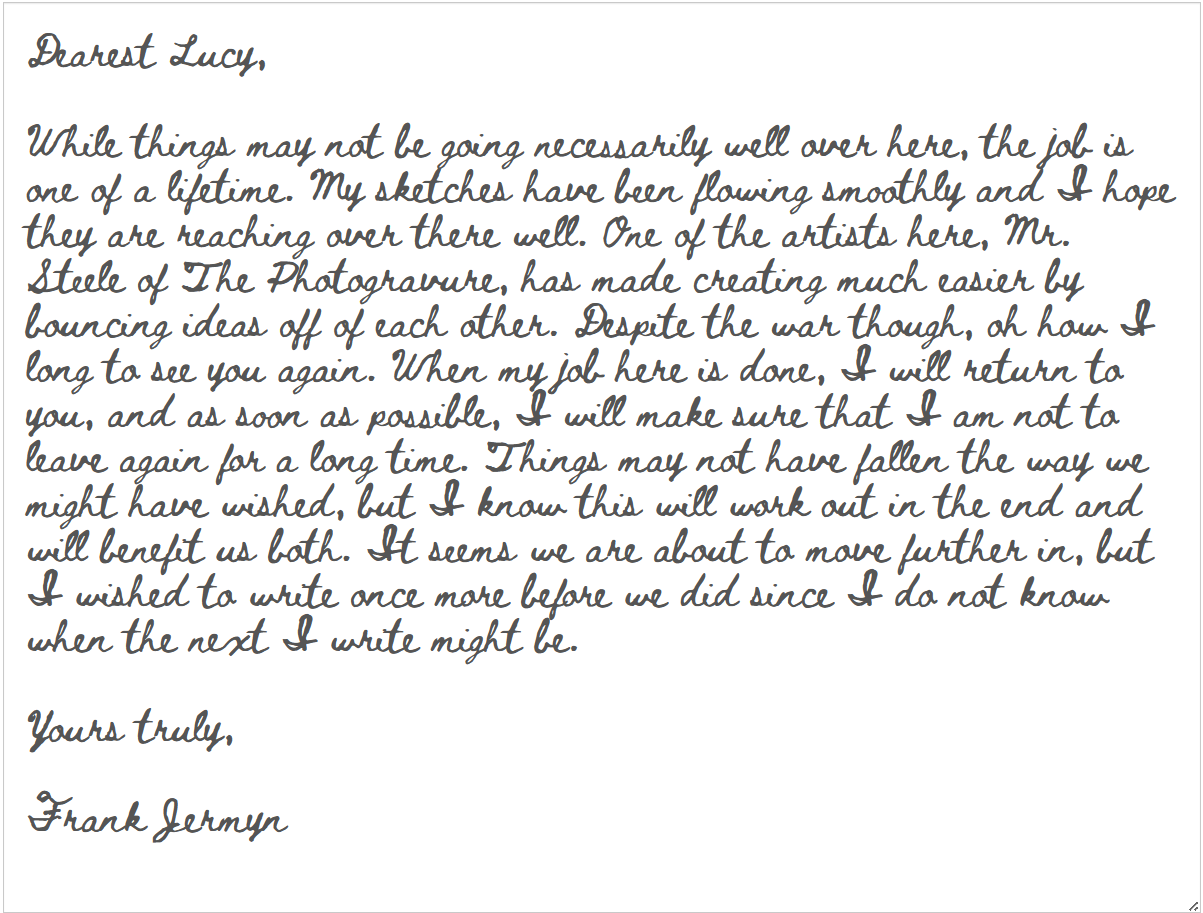 Dearest Lucy,
While things may not be going necessarily well over here, the job is
one of a lifetime. My sketches have been flowing smoothly and I hope
they are reaching over there well. One of the artists here, Mr.
Steele of The Photogravure, has made creating much easier by
bouncing ideas off of each other. Despite the war though, oh how I
long to see you again. When my job here is done, I will return to
you, and as soon as possible, I will make sure that I am not to
leave again for a long time. Things may not have fallen the way we
might have wished, but I know this will work out in the end and
will benefit us both. It seems we are about to move further in, but
I wished to write once more before we did since I do not know
when the next I write might be.
Yours truly,
Frank Jermyn